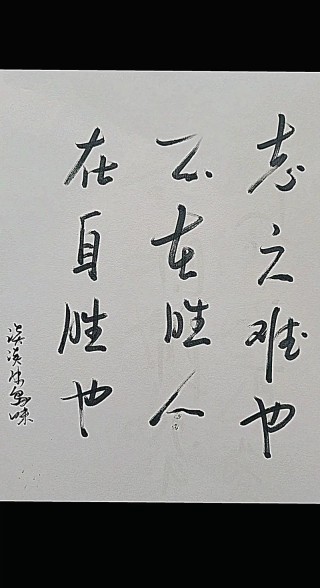 志之难也
不在胜人
在自胜也